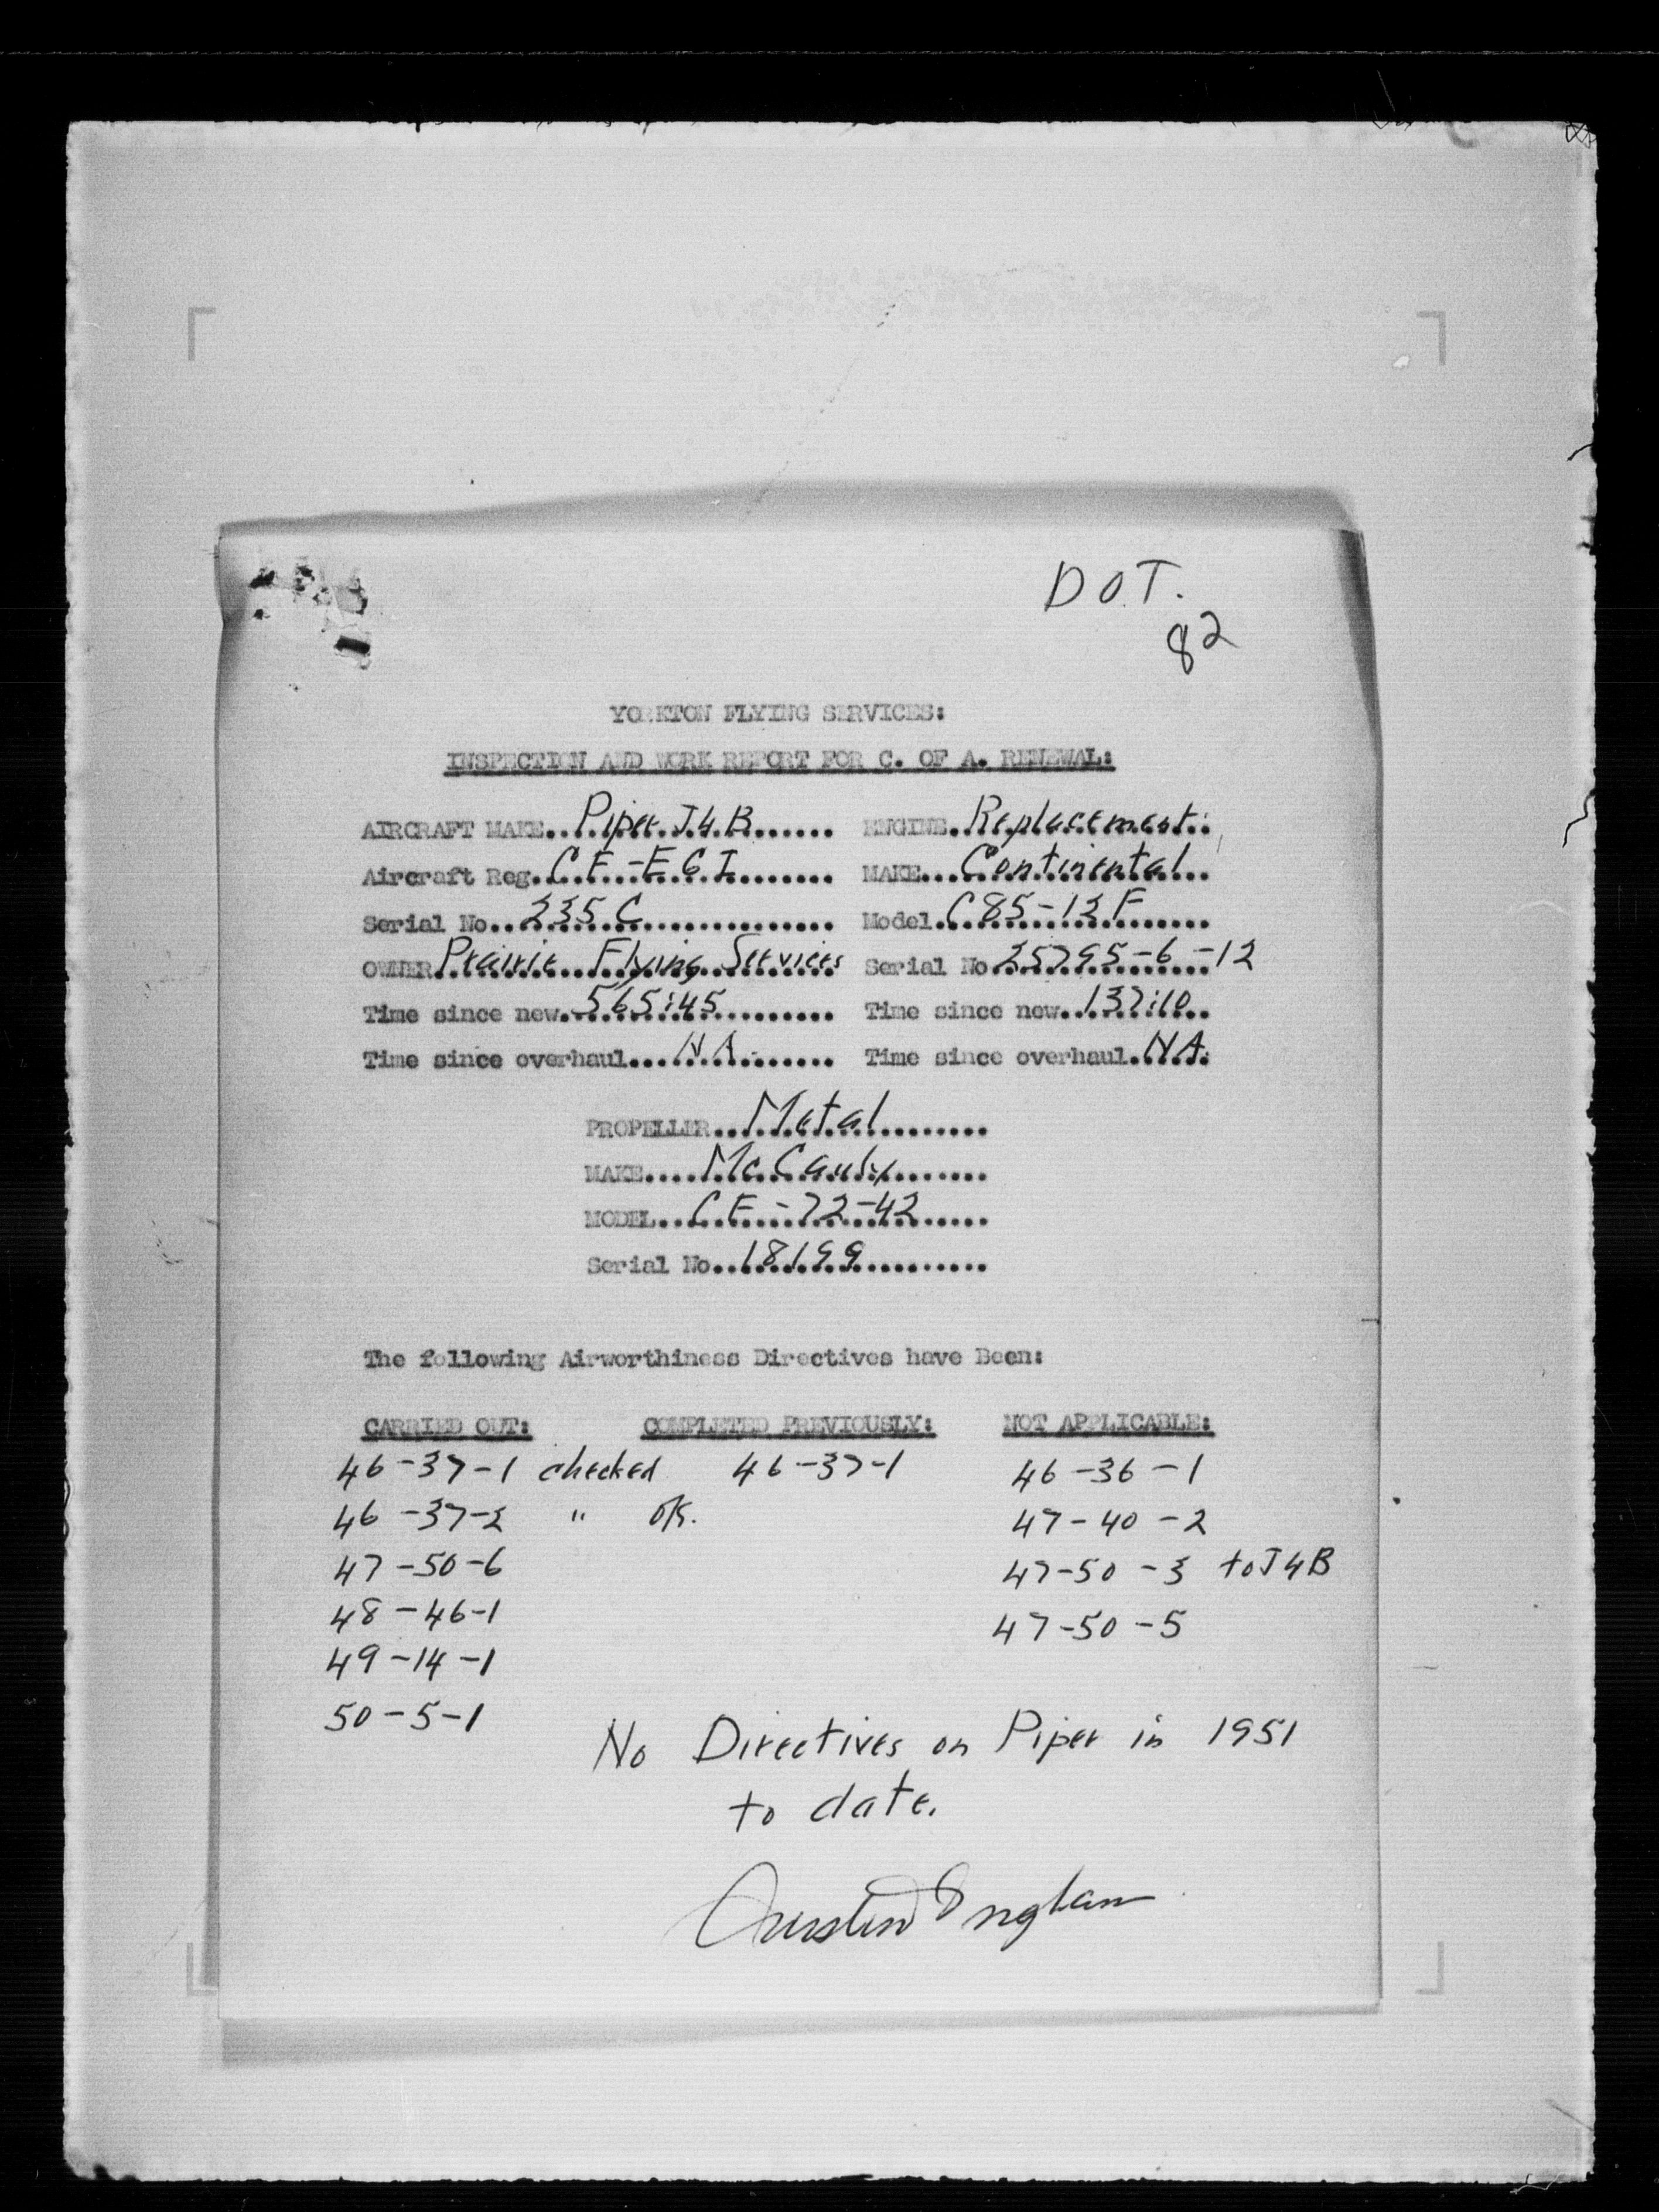 D.O.T.
82
YORKTON FLYING SERVICES:
INSPECTION AND WORK REPORT FOR C. OF A. RENEWAL:
AIRCRAFT MAKE..Piper J4B...... ENGINE.Replacement..
Aircraft Reg. CF-EGI........ MAKE...Continental..
Serial No..235C.............. Model.C85-12F......
OWNER Prairie Flying Services Serial No 25795-6-12
Time since new.565:45......... Time since new..137:10..
Time since overhaul...N.A....... Time since overhaul.N.A.
PROPELLER..Metal........
MAKE....McCauly.......
MODEL..CF-72-42......
Serial No..18199..........
The following Airworthiness Directives have Been:
CARRIED OUT: COMPLETED PREVIOUSLY: NOT APPLICABLE:
46-37-1 checked 46-37-1 46-36-1
46-37-2 " O/K. 47-40-2
47-50-6 47-50-3 to J4B
48-46-1 47-50-5
49-14-1
50-5-1
No Directives on Piper in 1951
to date.
Austin Ingham